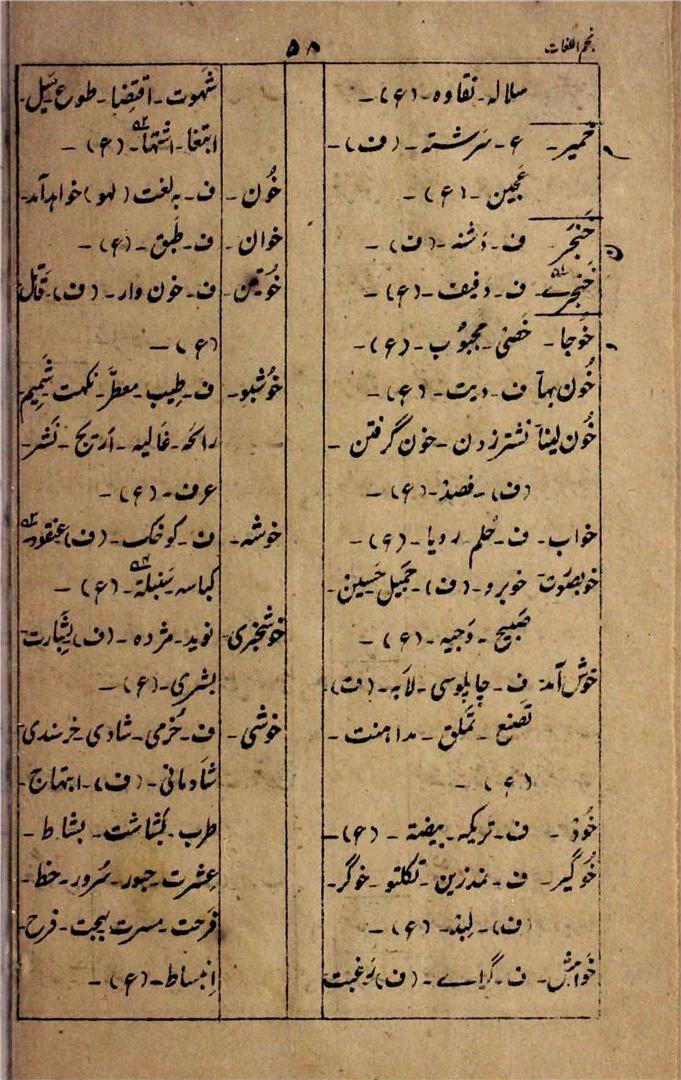 نجم اللغات
۵۸
سلالہ - نقاوہ - (ع) -
خمیر - ع - سَرشتہ - (ف) -
عَجین - (ع) -
خَنجَر ف - دَشنہ - (ف) -
خنجرے - ف - دفیف - (ع) -
خُوجا - خَصّی - مجبُوب - (ع) -
خُون بہا ف - دِیت - (ع) -
خُون لینا نشتر زدن - خون گرفتن -
(ف) - فصد - (ع) -
خواب - ف - حُلم - رویا - (ع) -
خوبصُورت خوبرو - (ف) - جَمیل حَسین -
صَبیح - وَجیہ - (ع) -
خوش آمد ف - چاپلوسی - لابہ - (ف)
تصَنع - تَملّق - مداہنت -
(ع) -
خُود - ف - تریکہ - بیضتہ - (ع) -
خُوگیر - ف - نمدزین - تکلتو - خوگر -
(ف) - لِبد - (ع) -
خواہش - ف - گراے - (ف) رَغبت
شہوت - اقتِضا - طوع - مَیل -
ابتغا - اشتہا - (ع) -
خُون - ف - بہ لغت (لہو) خواہد آمد -
خوان - ف - طبق - (ع) -
خونیں - ف - خون وار - (ف) - قاتل
(ع) -
خوُشبو - ف - طِیب - معطرّ - نکہت شَمِیم
رائحہ - غالیہ - اَرِیج - نَشر -
عرف - (ع) -
خوشہ - ف - کوخک - (ف) عنقود -
کباسہ سَنبلۃ - (ع) -
خوشخبری - نوید - مژدہ - (ف) بِشارت
بشریٰ - (ع) -
خوشی - ف - خُرمی - شادی - خرسندی
شادمانی - (ف) - ابتہاج -
طرب - بَشاشت - بشاط -
عِشرت - حبور - سُرور - حظ -
فَرحت - مسرت - بہجت - فرح -
اِنبساط - (ع) -